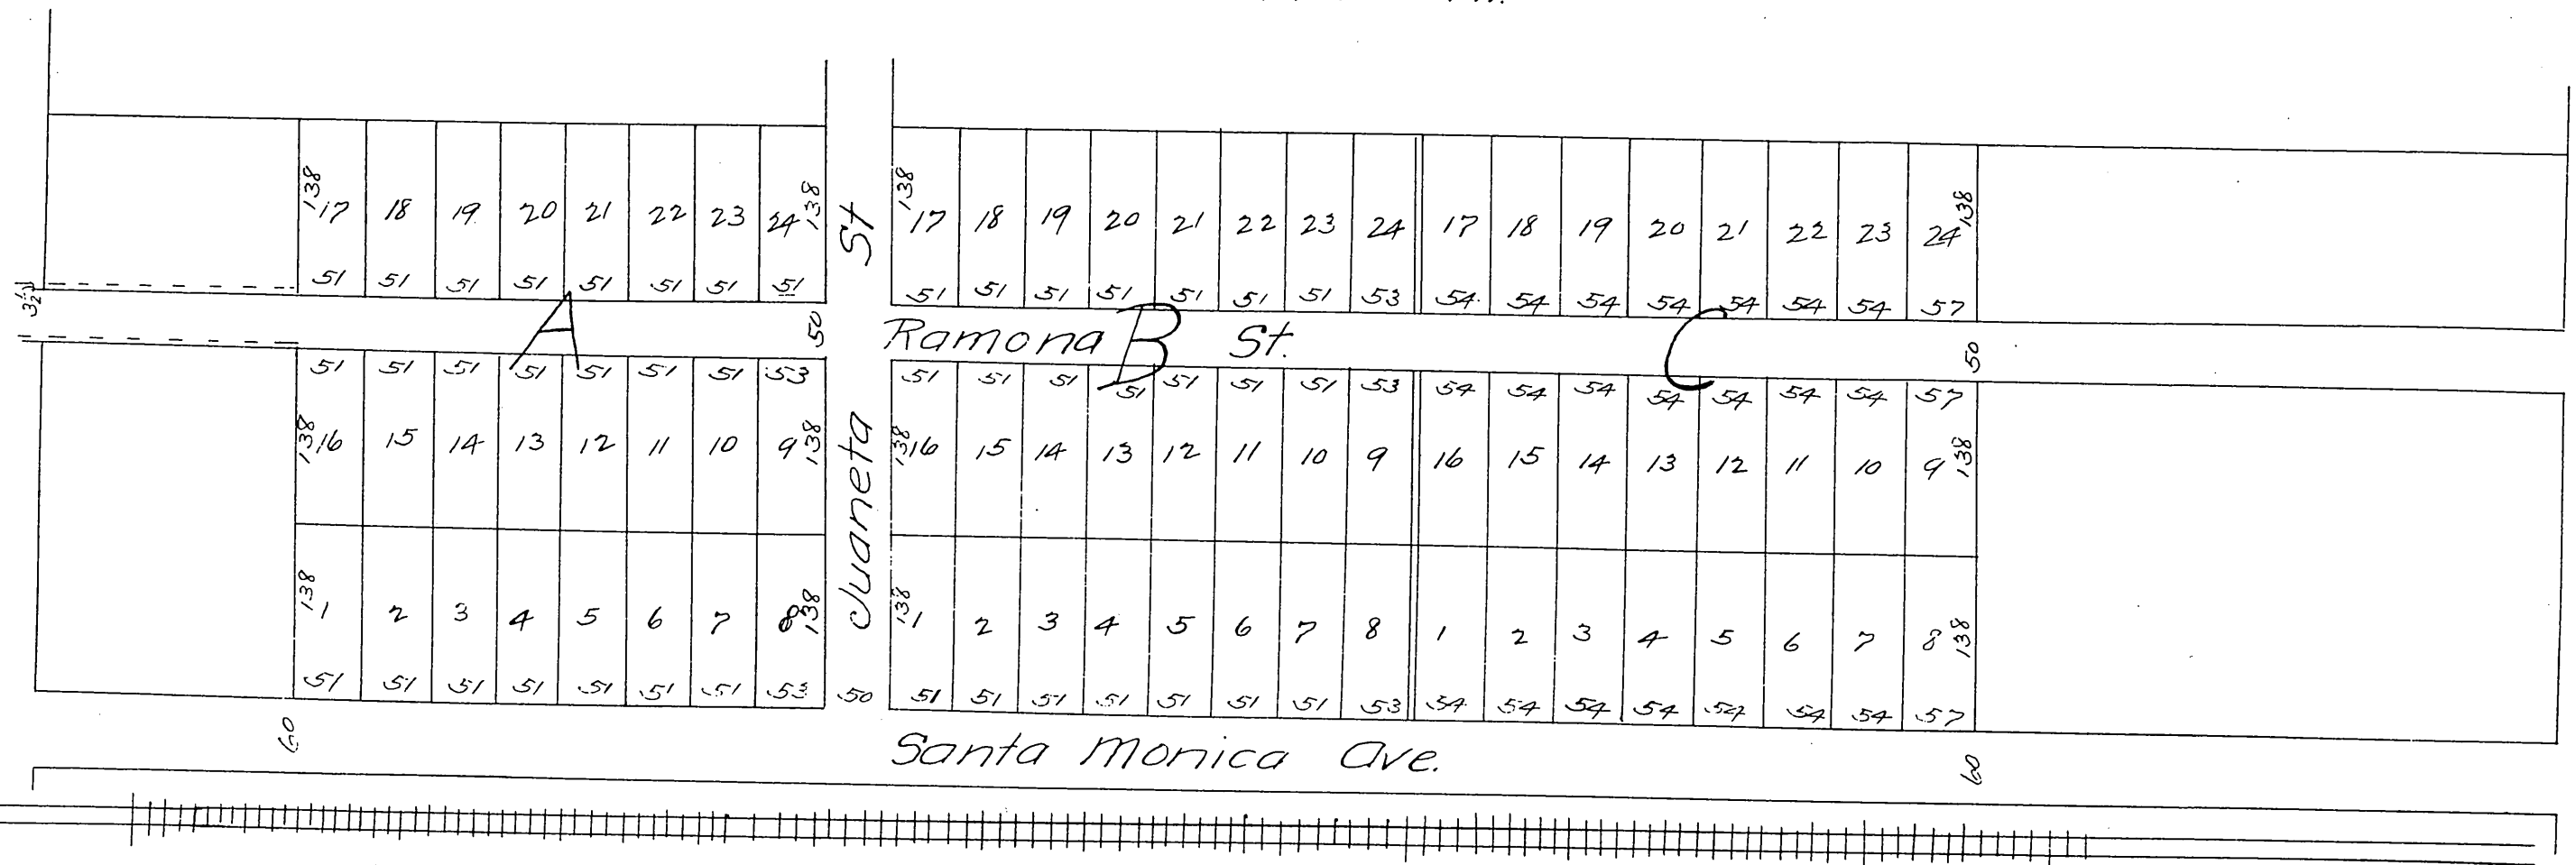 138 17 18 19 20 21 22 23 24 138
St
138 17 18 19 20 21 22 23 24 17 18 19 20 21 22 23 24 138
51 51 51 51 51 51 51 51
51 51 51 51 51 51 51 53 54 54 54 54 54 54 54 57
A 50 Ramona B St. C 50
51 51 51 51 51 51 51 53
51 51 51 51 51 51 51 53 54 54 54 54 54 54 54 57
138 16 15 14 13 12 11 10 9 138
Juaneta
138 16 15 14 13 12 11 10 9 16 15 14 13 12 11 10 9 138
138 1 2 3 4 5 6 7 8 138
138 1 2 3 4 5 6 7 8 1 2 3 4 5 6 7 8 138
51 51 51 51 51 51 51 53 50 51 51 51 51 51 51 51 53 54 54 54 54 54 54 54 57
60 Santa Monica Ave. 60